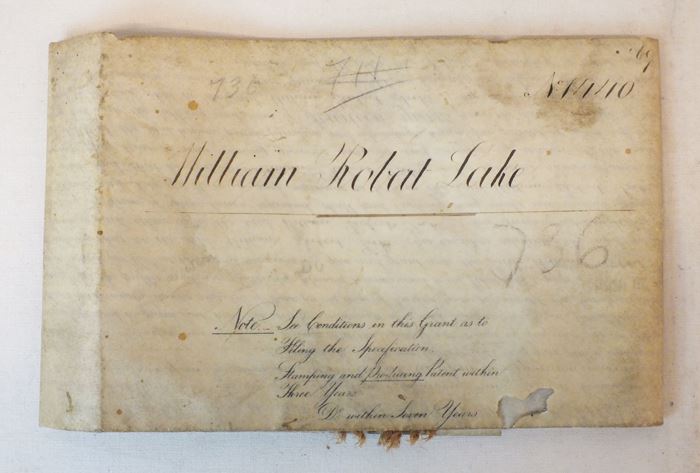 69
736 711
No 1440
William Robat Lake
736
Note.— See Conditions in this Grant as to
Filing the Specification.
Stamping and producing Patent within
Three Years
Do. within Seven Years